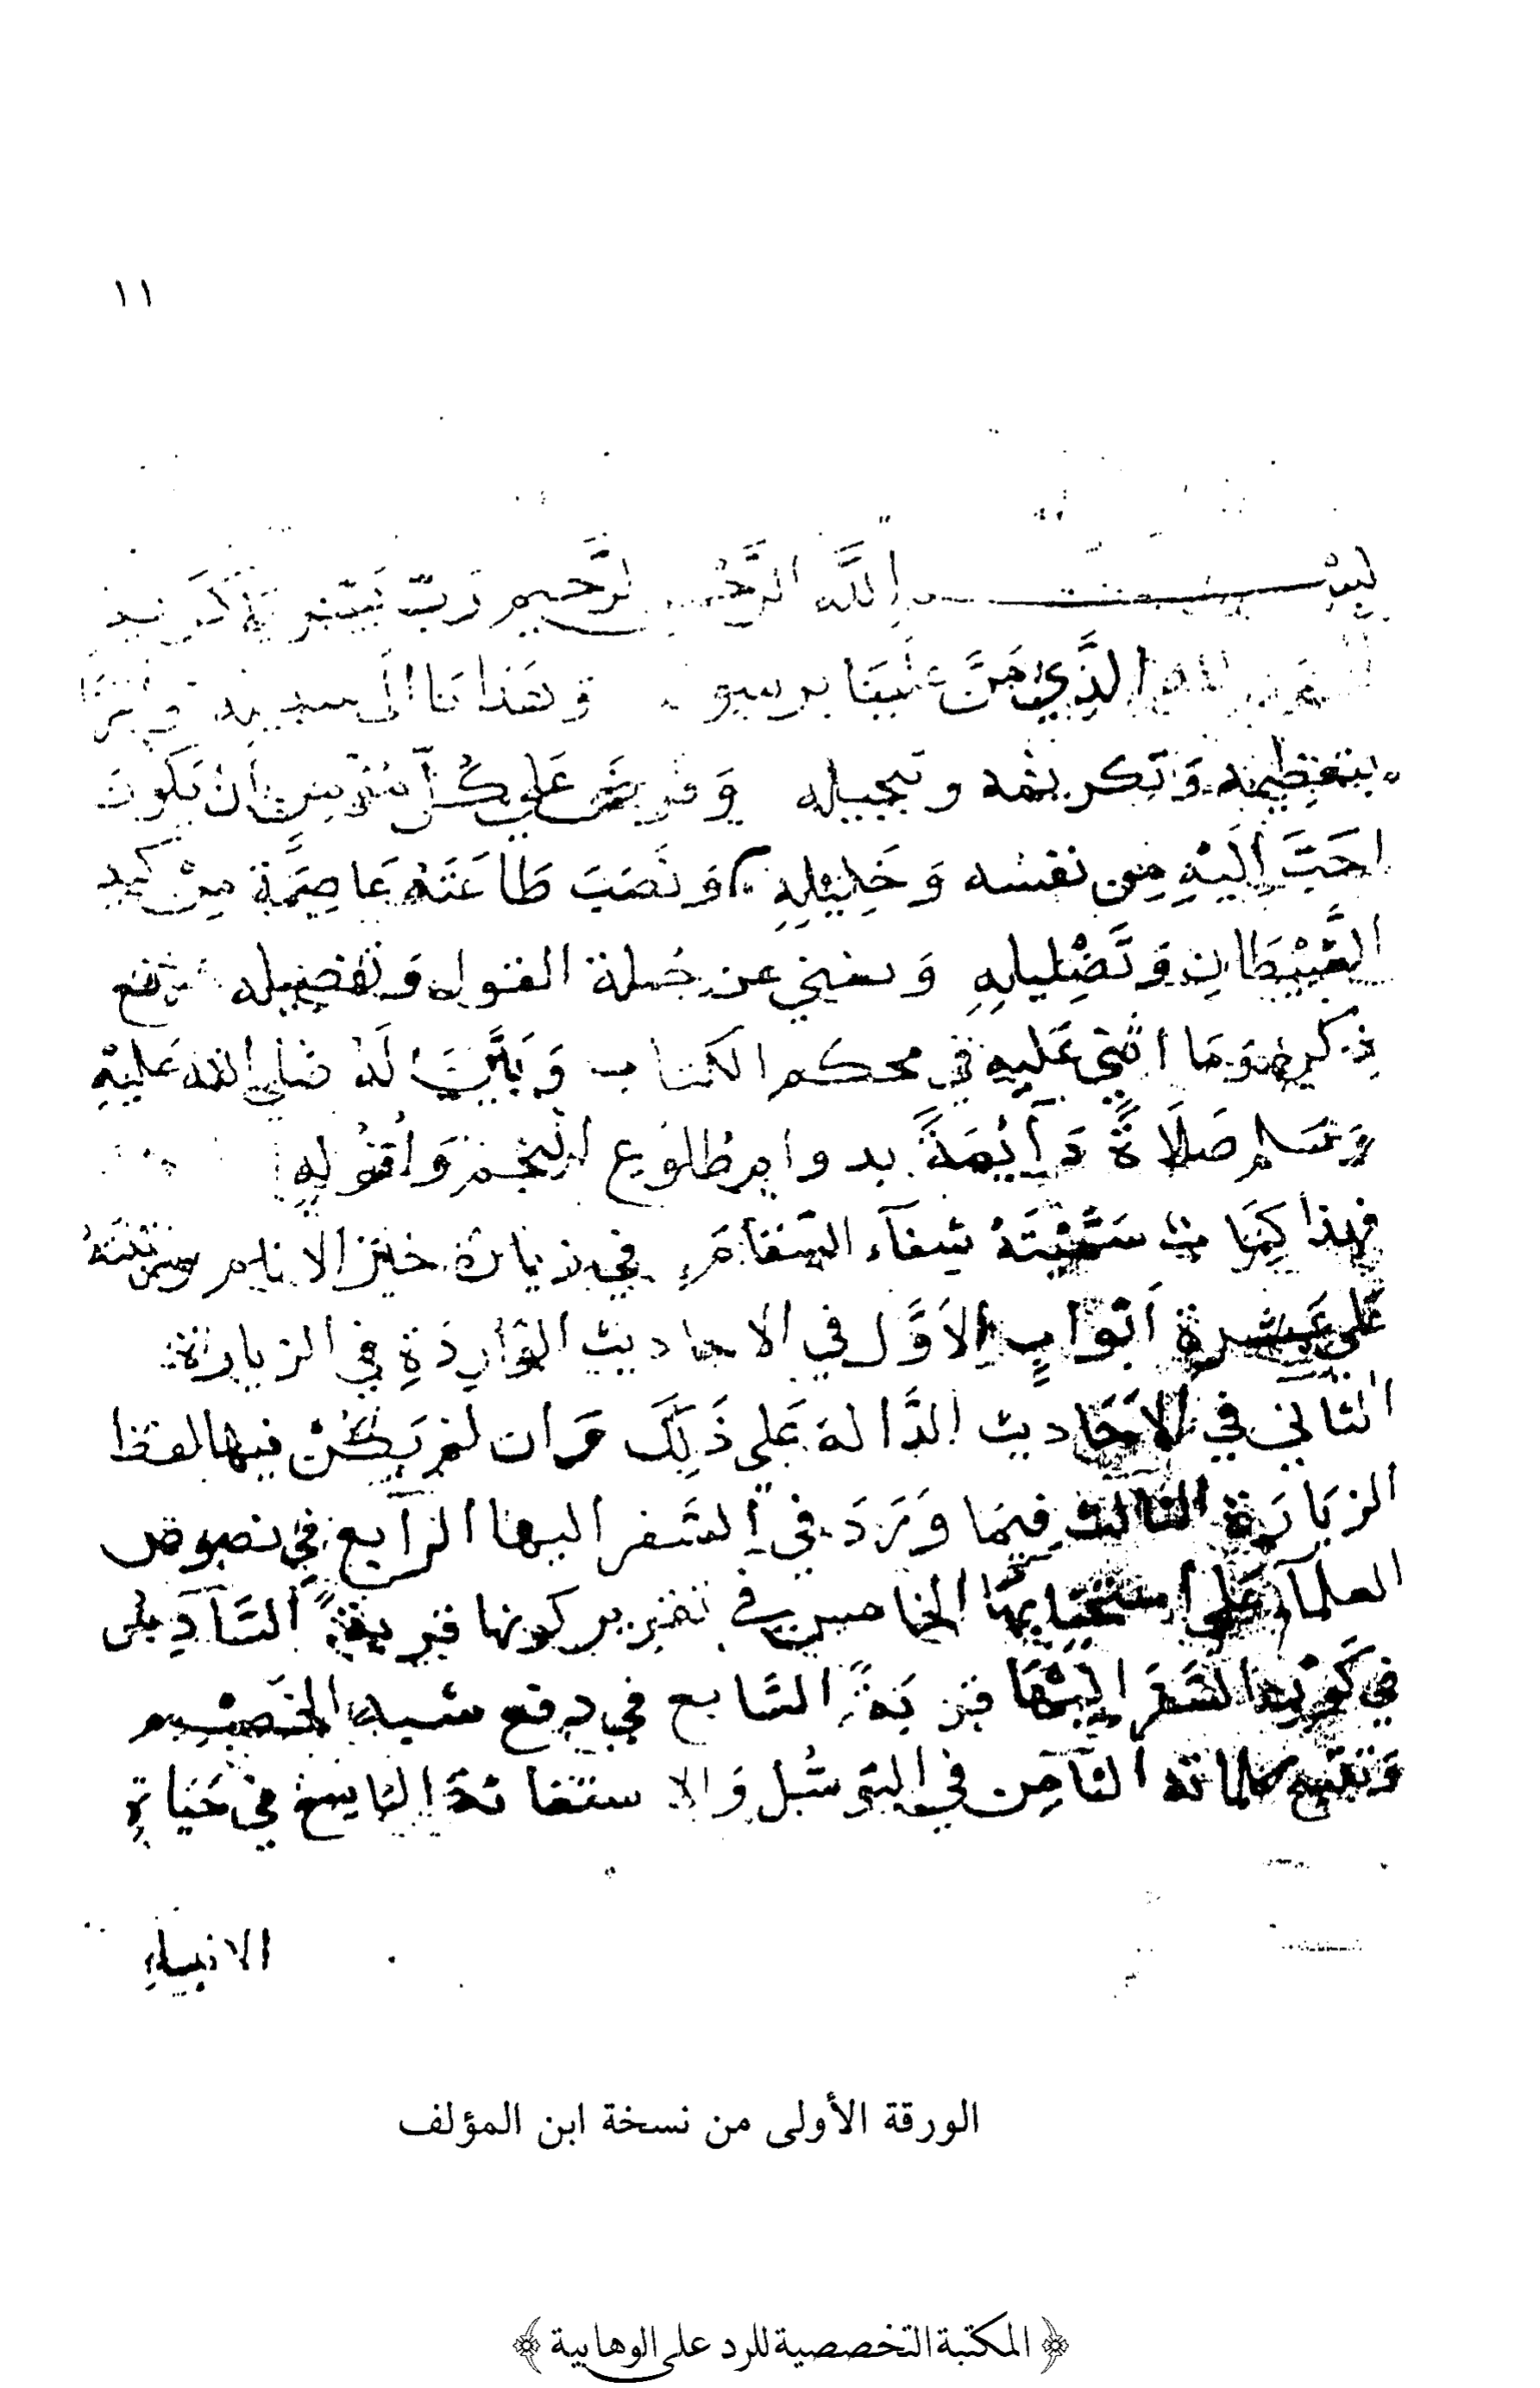 ١١
بسم الله الرحمن الرحيم رب يسر يا كريم
الحمد لله الذي من علينا برسوله وهدانا الى سبيله
بتعظيمه وتكريمه وتبجيله وفرض على كل مؤمن ان يكون
احب اليه من نفسه وخليله ونصب طاعته عاصمة من كيد
الشيطان وتضليله ويغني عن جملة القول وتفصيله رفع
ذكره وما اثنى عليه في محكم الكتاب صلى الله عليه
وسلم صلاة دآئمة بدوام طلوع النجم وافوله
فهذا كتاب سميته شفآء السقام في زيارة خير الانام ورتبته
على عشرة ابواب الاول في الاحاديث الواردة في الزيارة
الثاني في الاحاديث الدالة على ذلك وان لم يكن فيها لفظ
الزيارة الثالث فيما ورد في السفر اليها الرابع في نصوص
العلمآء على استحبابها الخامس في تقرير كونها قربة السادس
في كون السفر اليها قربة السابع في دفع شبه الخصم
وتتبع كلماته الثامن في التوسل والاستغاثة التاسع في حياة
الانبياء
الورقة الأولى من نسخة ابن المؤلف
﴿ المكتبة التخصصية للرد على الوهابية ﴾